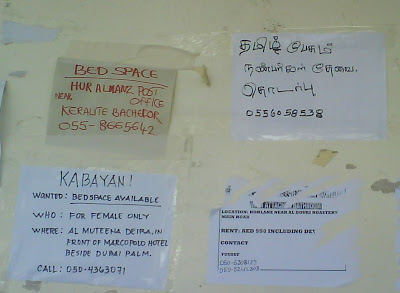 BED SPACE
HUR ALMANZ POST
NEAR OFFICE
KERALITE BACHELOR
055-8665642
தமிழ் பேசும்
நண்பர்கள் தேவை.
தொடர்பு
0556058538
KABAYAN!
WANTED: BEDSPACE AVAILABLE
WHO: FOR FEMALE ONLY
WHERE: AL MUTEENA DEIRA, IN
FRONT OF MARCOPOLO HOTEL
BESIDE DUBAI PALM.
CALL: 050-4363071
LOCATION: HORLANZ NEAR AL DOURI ROASTERY
MAIN ROAD
RENT: AED 550 INCLUDING DEV
CONTACT